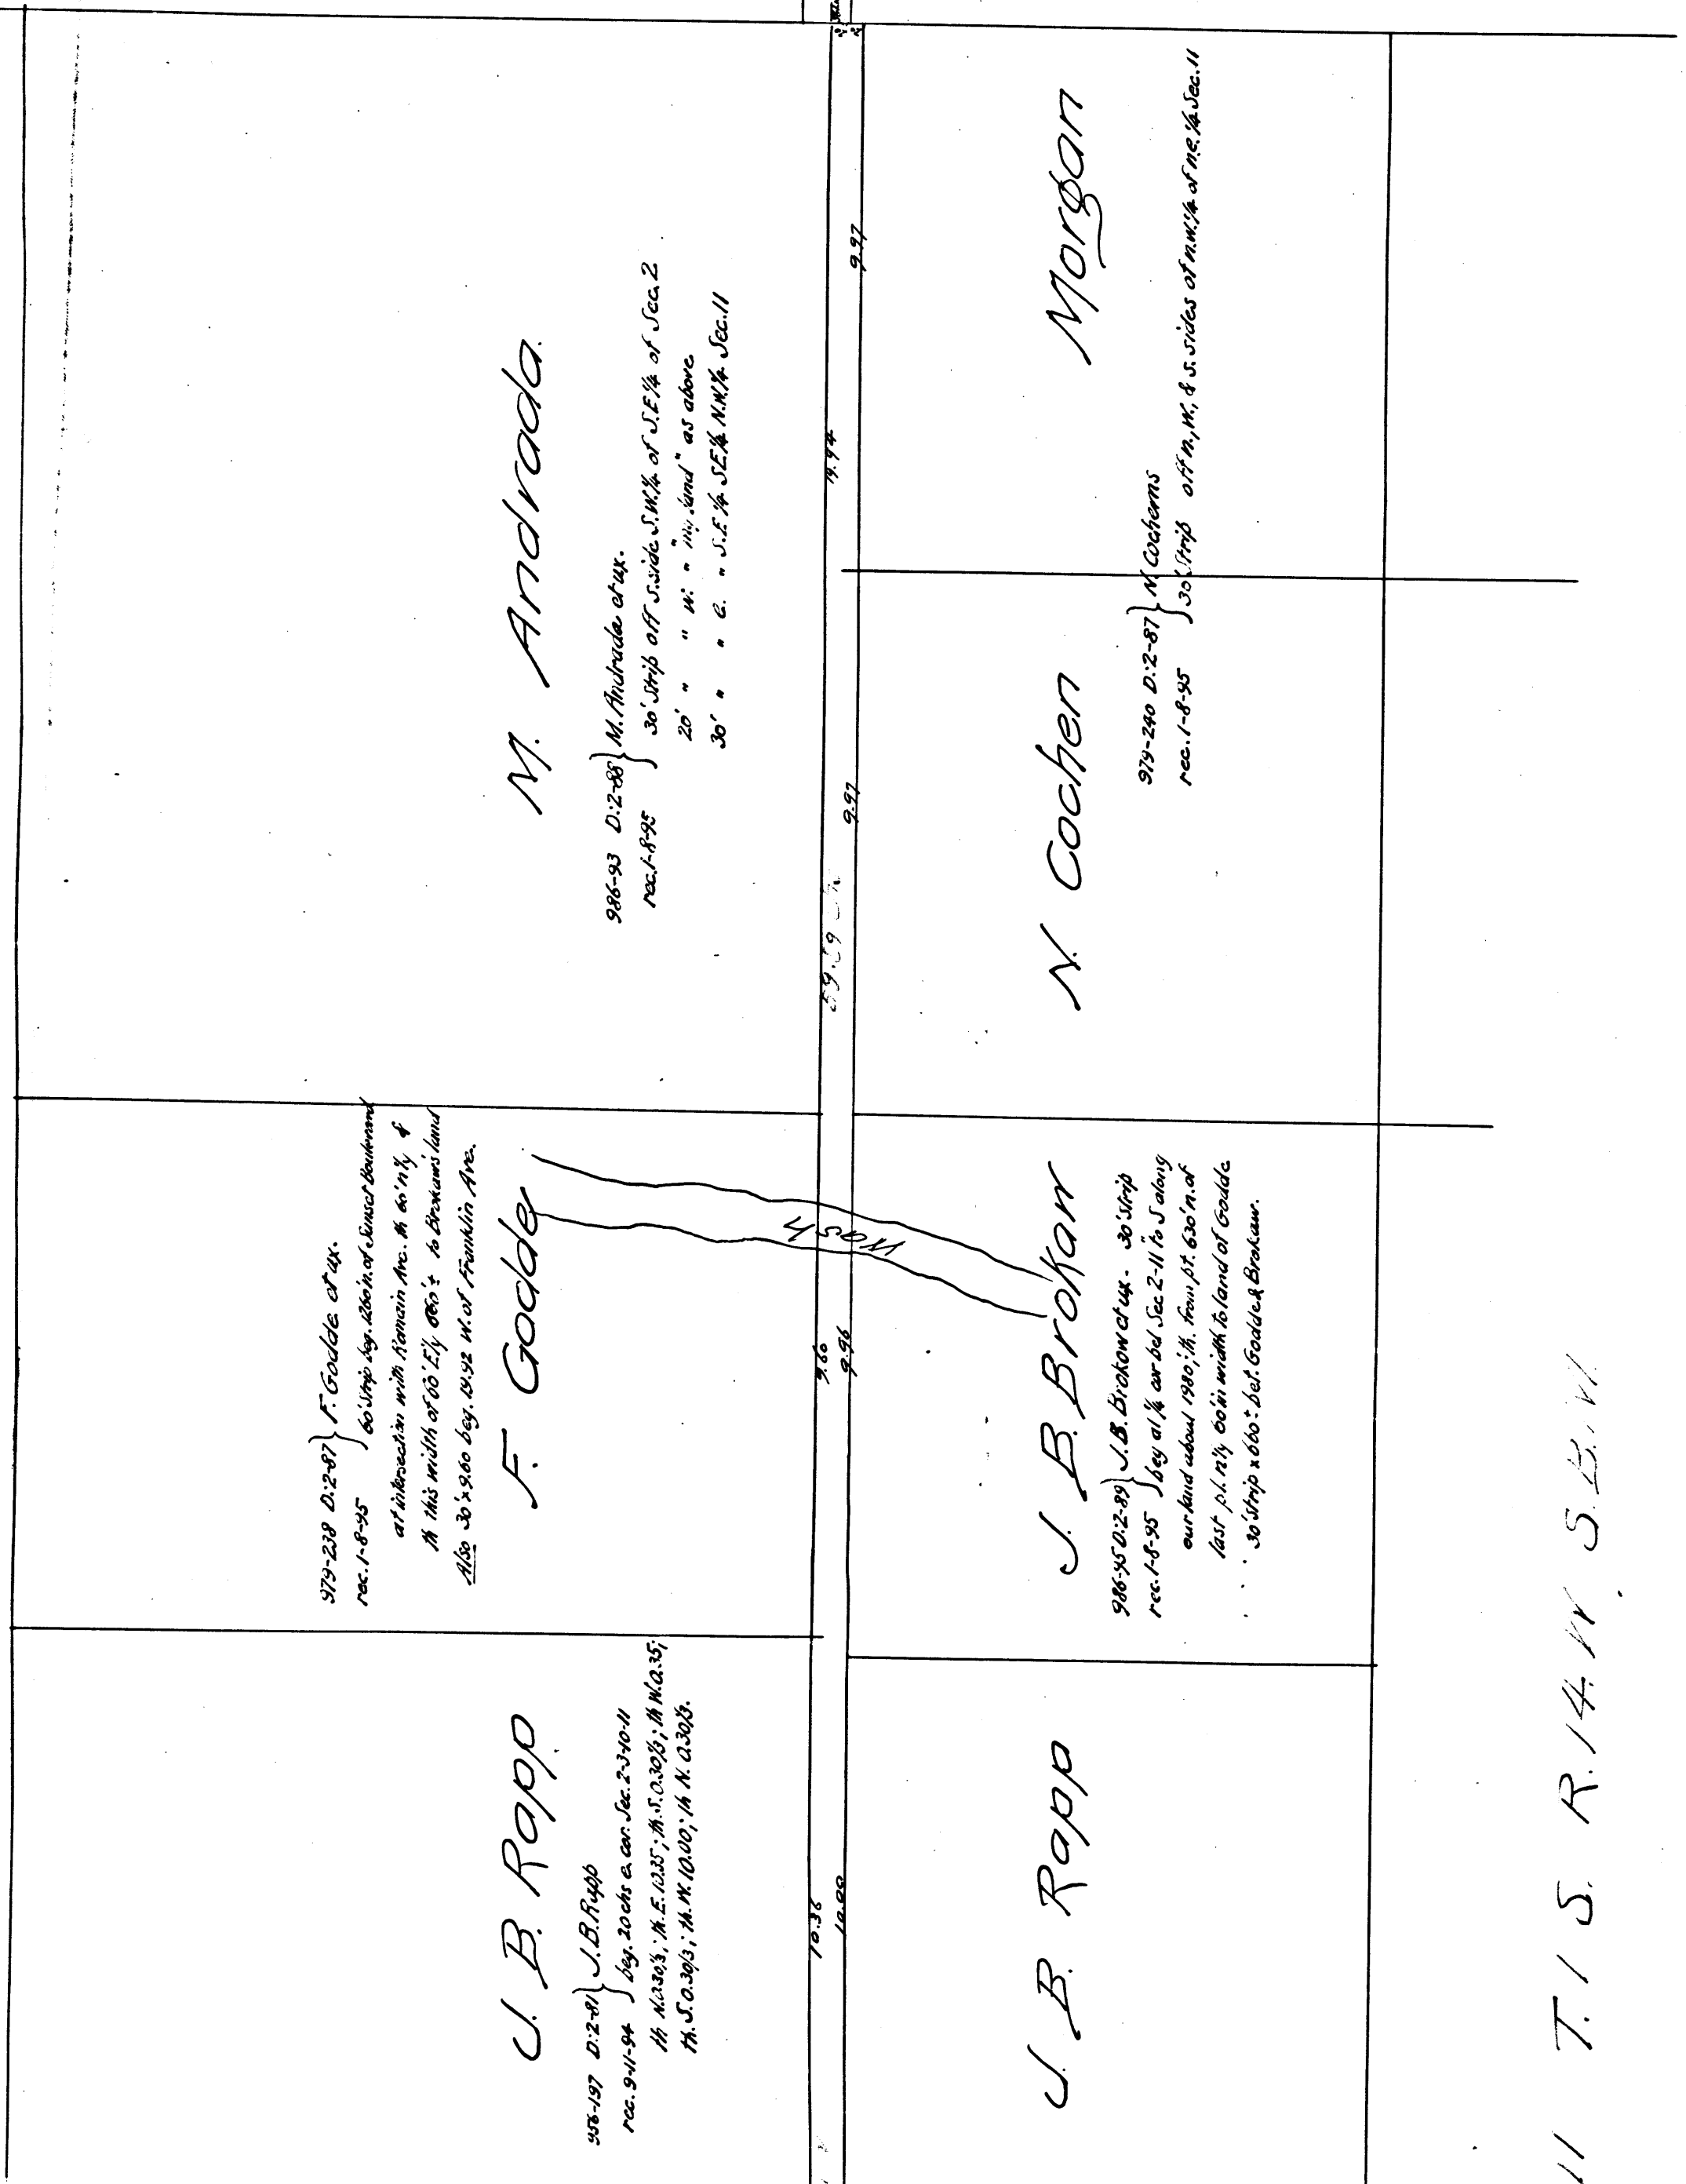 J. B. Rapp
956-197 D:2-81 } J.B.Rapp
rec. 9-11-94 } beg. 20 chs e. cor. Sec. 2-3-10-11
th N.0.30⅓; th. E. 10.35; th. S.0.30⅓; th W.0.35;
th. S.0.30⅓; th. W. 10.00; th N. 0.30⅓.
979-238 D:2-87 } F. Godde et ux.
rec. 1-8-95 } 60' Strip beg. 1260' n. of Sunset Boulevard
at intersection with Romain Ave. th 60' n'ly &
th this width of 60' E'ly 660' ± to Brokaws land
Also 30' x 9.60 beg. 19.92 W. of Franklin Ave.
F. Godde
M. Andrada.
986-93 D:2-88 } M. Andrada et ux.
rec. 1-8-95 } 30' Strip off s. side S.W.¼ of S.E.¼ of Sec. 2
20' " " w. " "my land" as above
30' " " e. " S.E.¼ SE¼ N.W.¼ Sec. 11
10.36 9.60 19.94
10.00 9.96 9.97 9.97
Wash
J. B. Rapp
J. B. Brokaw
986-95 D:2-89 } J.B. Brokow et ux - 30' Strip
rec. 1-8-95 } beg at ¼ cor bet Sec 2-11 to S along
our land about 1980'; th. from pt. 630' n. of
last pt. n'ly 60' in width to land of Godde
30' Strip x 660 ± bet. Godde & Brokaw.
N. Cochen
979-240 D:2-87 } N. Cochems
rec. 1-8-95 } 30' Strip off n., w., & s. sides of n.w.¼ of n.e.¼ Sec. 11
Morgan
11 T. 1 S. R. 14. W. S. B. M.